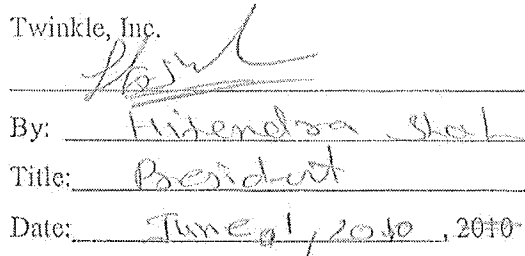 Twinkle, Inc.
By: Hitendra Shah
Title: President
Date: June 1, 2010 , 2010